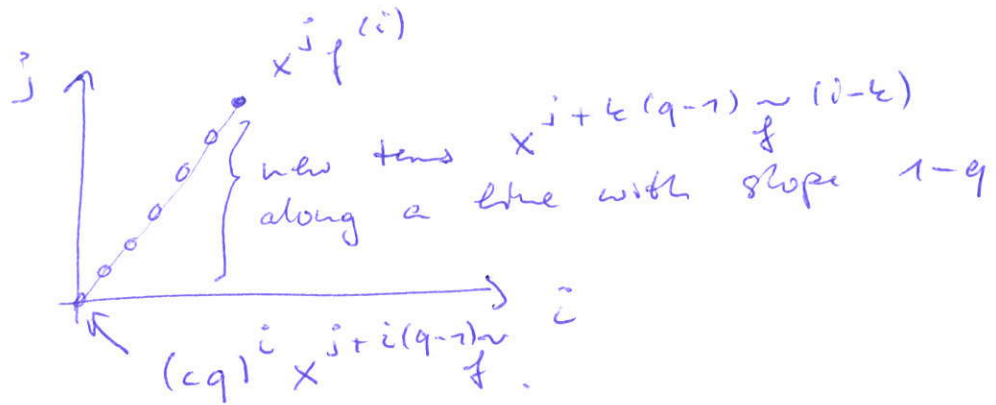 x^j f^(i)
j
new terms x^{j+k(q-1)} f̃^(i-k)
along a line with slope 1-q
i
(cq)^i x^{j+i(q-1)} f̃.